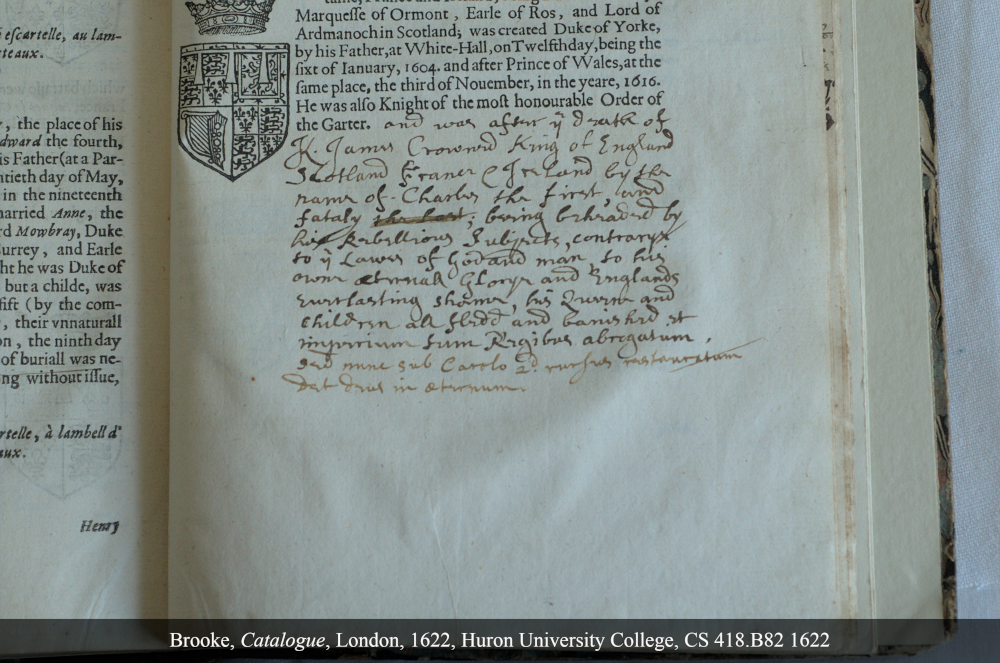 i escartelle, au lam-
teaux.
, the place of his
dward the fourth,
is Father (at a Par-
ntieth day of May,
in the nineteenth
narried Anne, the
rd Mowbray, Duke
Surrey, and Earle
ht he was Duke of
but a childe, was
fift (by the com-
, their vnnaturall
on, the ninth day
of buriall was ne-
ng without issue,
rtelle, à lambell d'
aux.
Henry
Marquesse of Ormont, Earle of Ros, and Lord of
Ardmanoch in Scotland; was created Duke of Yorke,
by his Father, at White-Hall, on Twelfthday, being the
sixt of Ianuary, 1604. and after Prince of Wales, at the
same place, the third of Nouember, in the yeare, 1616.
He was also Knight of the most honourable Order of
the Garter. and was after yͤ death of
K. James Crowned King of England
Scotland France & Ireland by the
name of Charles the first, and
fataly the last; being beheaded by
his Rebellious Subjects, contrarye
to yͤ Lawes of God and man, to his
owne æternall Glorye and Englands
Everlasting shame, his Queene and
children all fledd and banished et
imperium sum Regibus abrogatum.
sed nunc sub Carolo 2d. rursus restauratum
det deus in æternum.
Brooke, Catalogue, London, 1622, Huron University College, CS 418.B82 1622